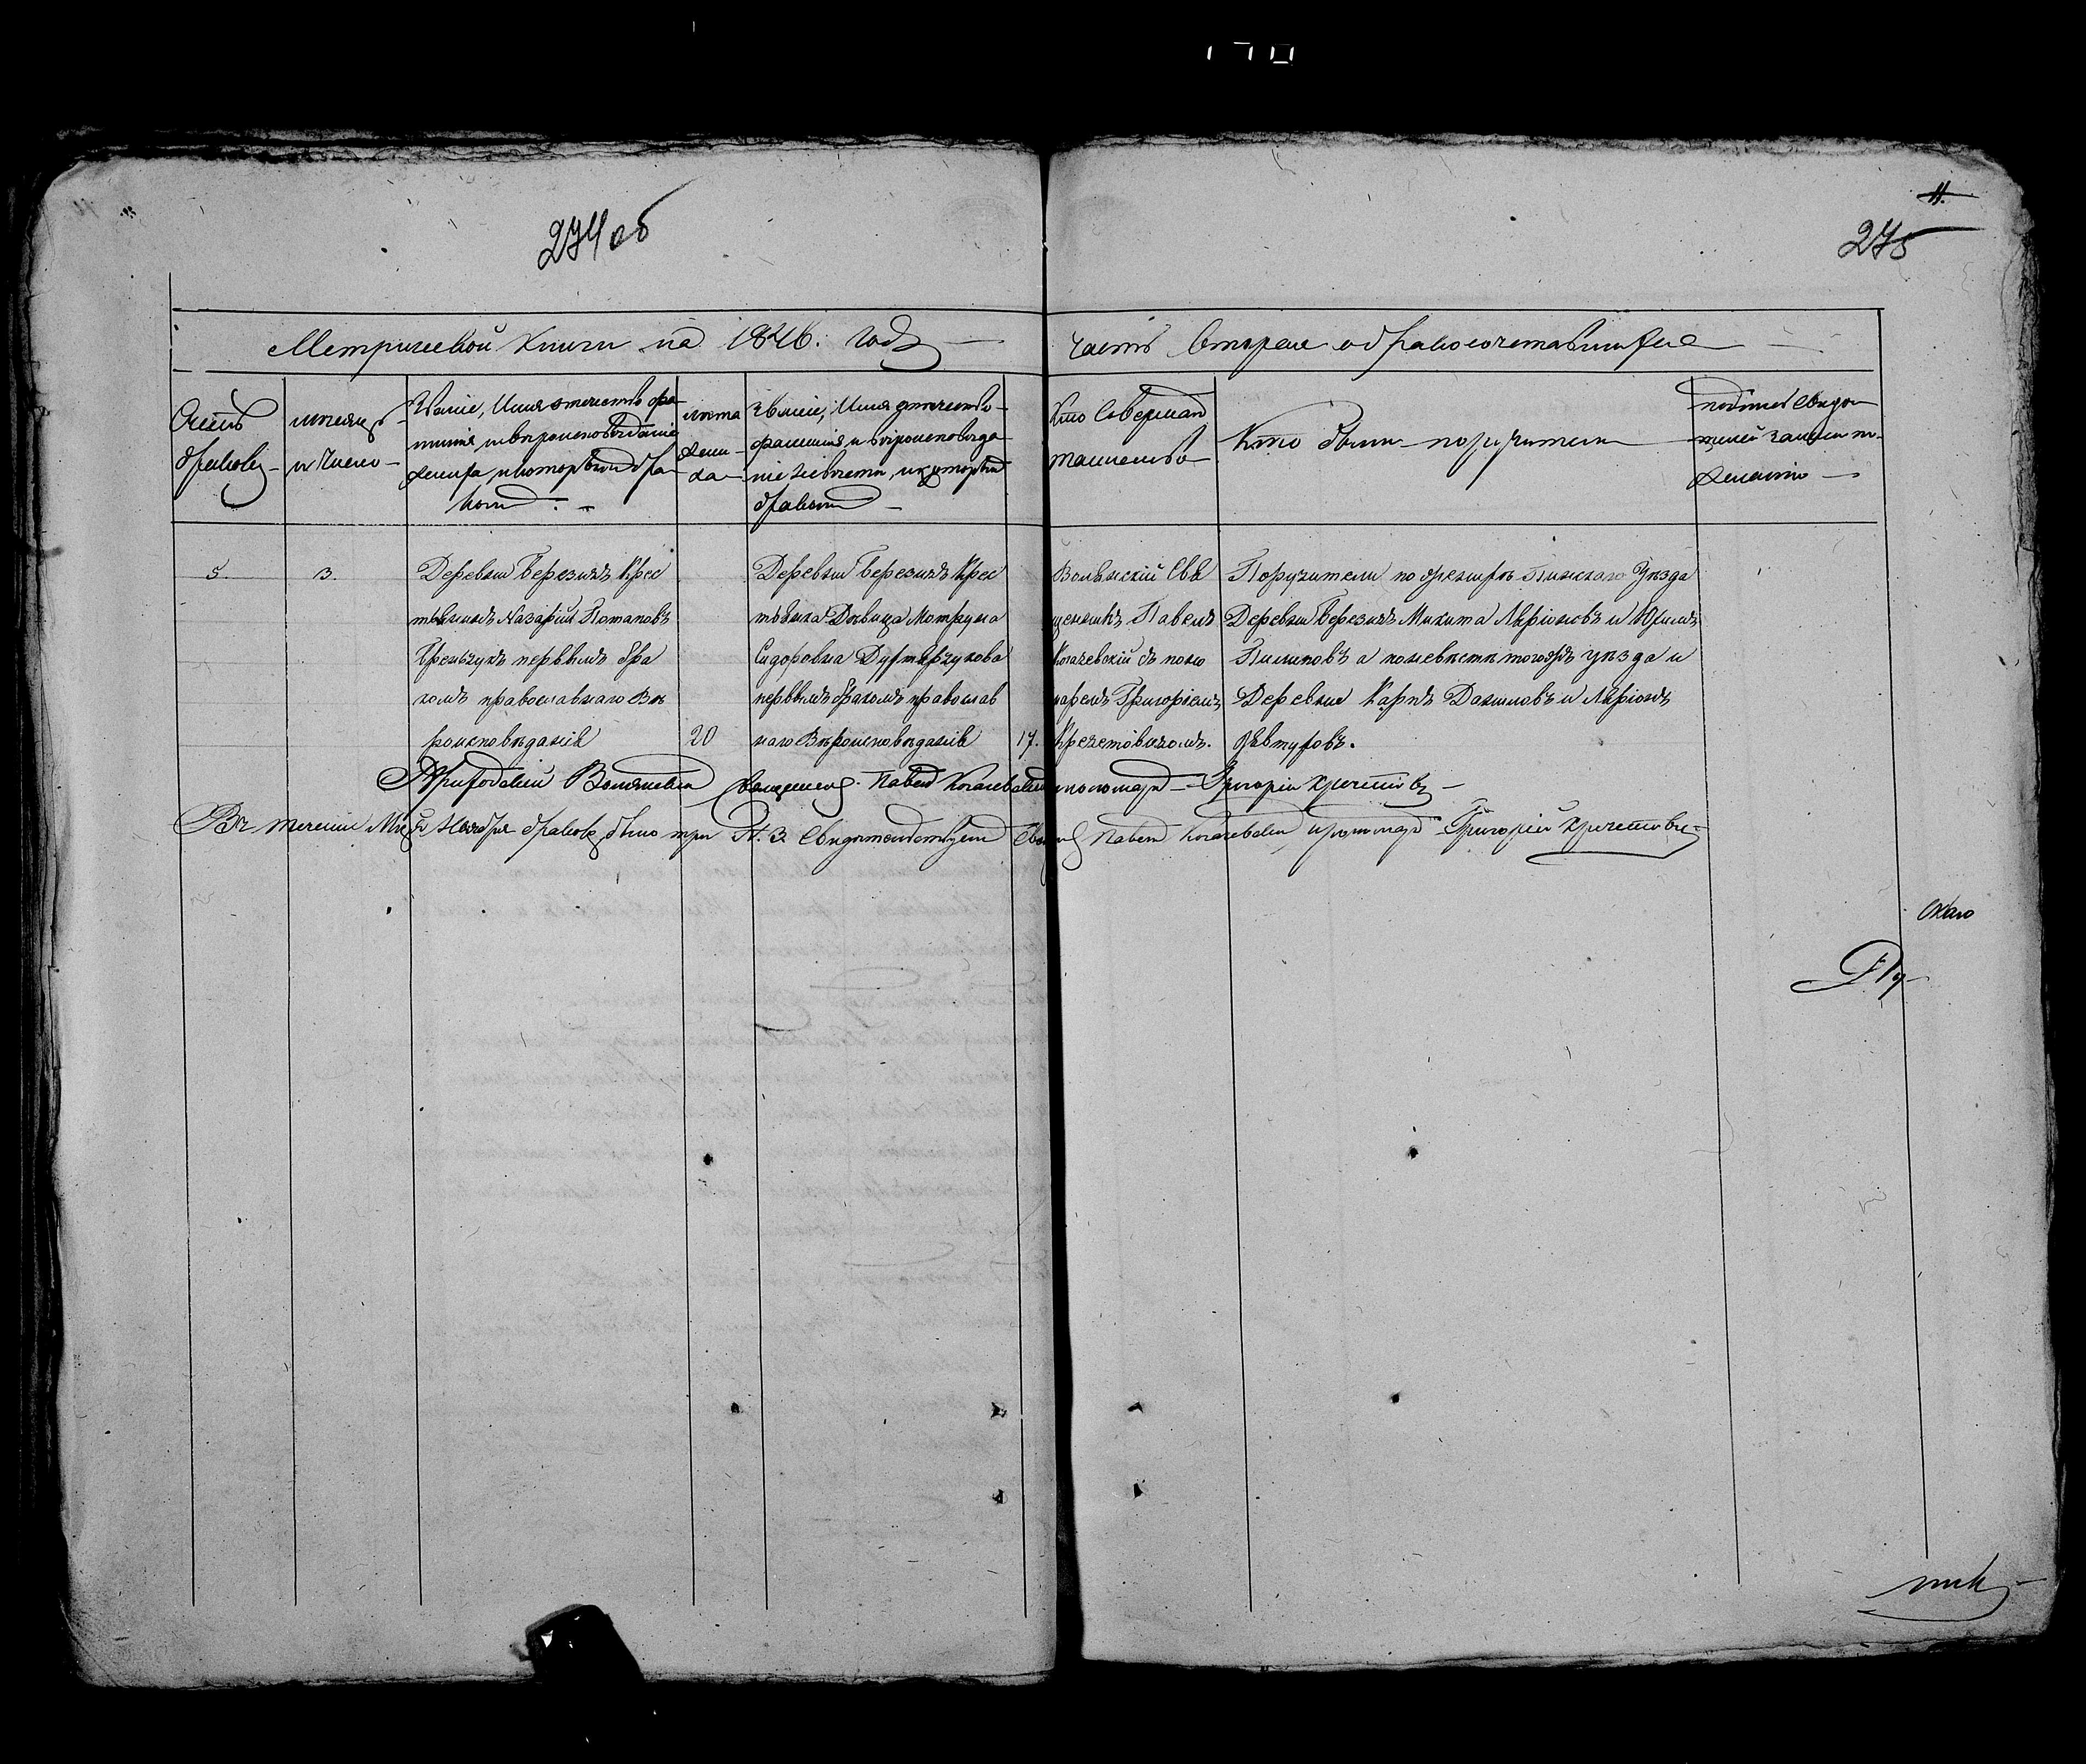 170
11.
274 об
275
Метрической Книги на 1846. годъ
часть вторая о бракосочетавшихся
Счетъ
браковъ
месяцъ
и число
Званіе, Имя отечество фа
милія и вероисповѣданіе
жениха, и которымъ бра
комъ
лета
жени
ха
Званіе, Имя отечество
фамилія и вѣроисповѣда
ніе невѣсты, и которымъ
бракомъ
Кто Совершалъ
таинство
Кто были поручители
подписъ Свидѣ
телей записи по
желанію
5. 3.
Деревни Березилъ Крес
тьянинъ Назарій Потаповъ
первымъ бра
комъ православнаго Вѣ
роисповѣданія 20
Деревни Березилъ Крес
тьянка Дѣвица Мотруна
Сидоровна
первымъ бракомъ православ
наго Вѣроисповѣданія 17.
Вольанскій Свя
щенникъ Павелъ
Когачевскій съ поно
маремъ Григоріемъ
Кречетовичомъ.
Поручители по женихѣ Пинскаго Уѣзда
Деревни Березилъ Микита Ларіоновъ и
Пилиповъ а по невѣсте тогожъ уѣзда и
Деревни Карпъ Даниловъ и Ларіонъ
Приходскій священникъ Павелъ Когачевскій пономарь Григорій Кречетовичъ
Въ теченіи Мца Ноября браковъ было три №. 3. Свидетельствуемъ Свящ Павелъ Когачевскій, пономарь Григорій Кречетовичъ
скаго